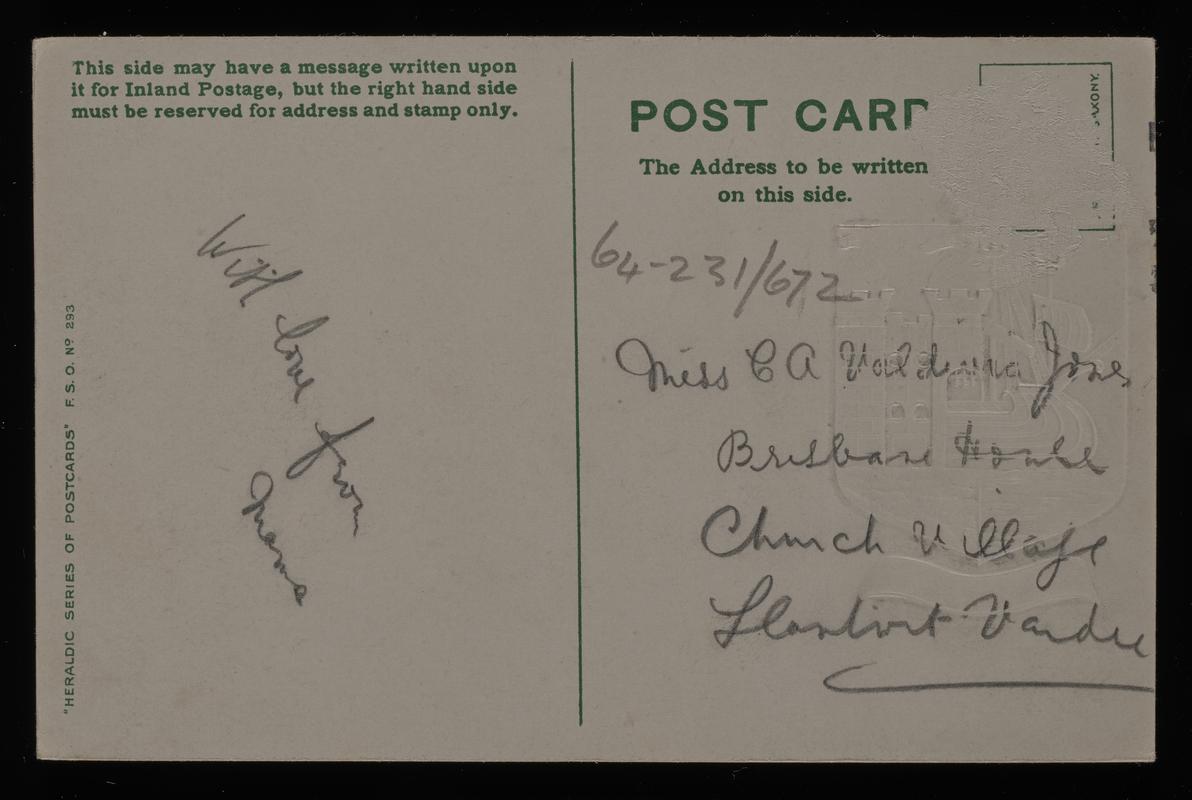 This side may have a message written upon
it for Inland Postage, but the right hand side
must be reserved for address and stamp only.
"HERALDIC SERIES OF POSTCARDS" F. S. O. Nº 293
With love from
Mama
POST CARD
The Address to be written
on this side.
64-231/672
Miss C A Jones
Brisbane House
Church Village
Llantwit Vardre